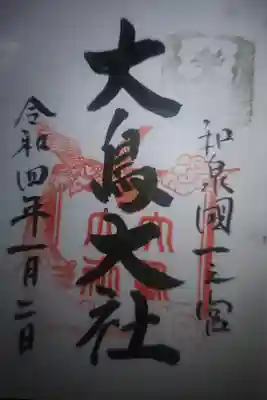 和泉國一之宮
大鳥大社
令和四年一月二日